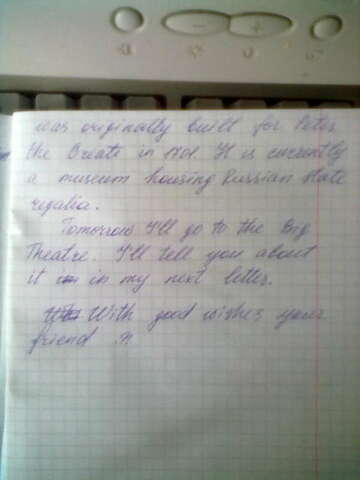 was originally built for Peter
the Greate in 1701. It is currently
a museum housing Russian state
regalia.
Tomorrow I'll go to the Big
Theatre. I'll tell you about
it in my next letter.
With good wishes your
friend N.